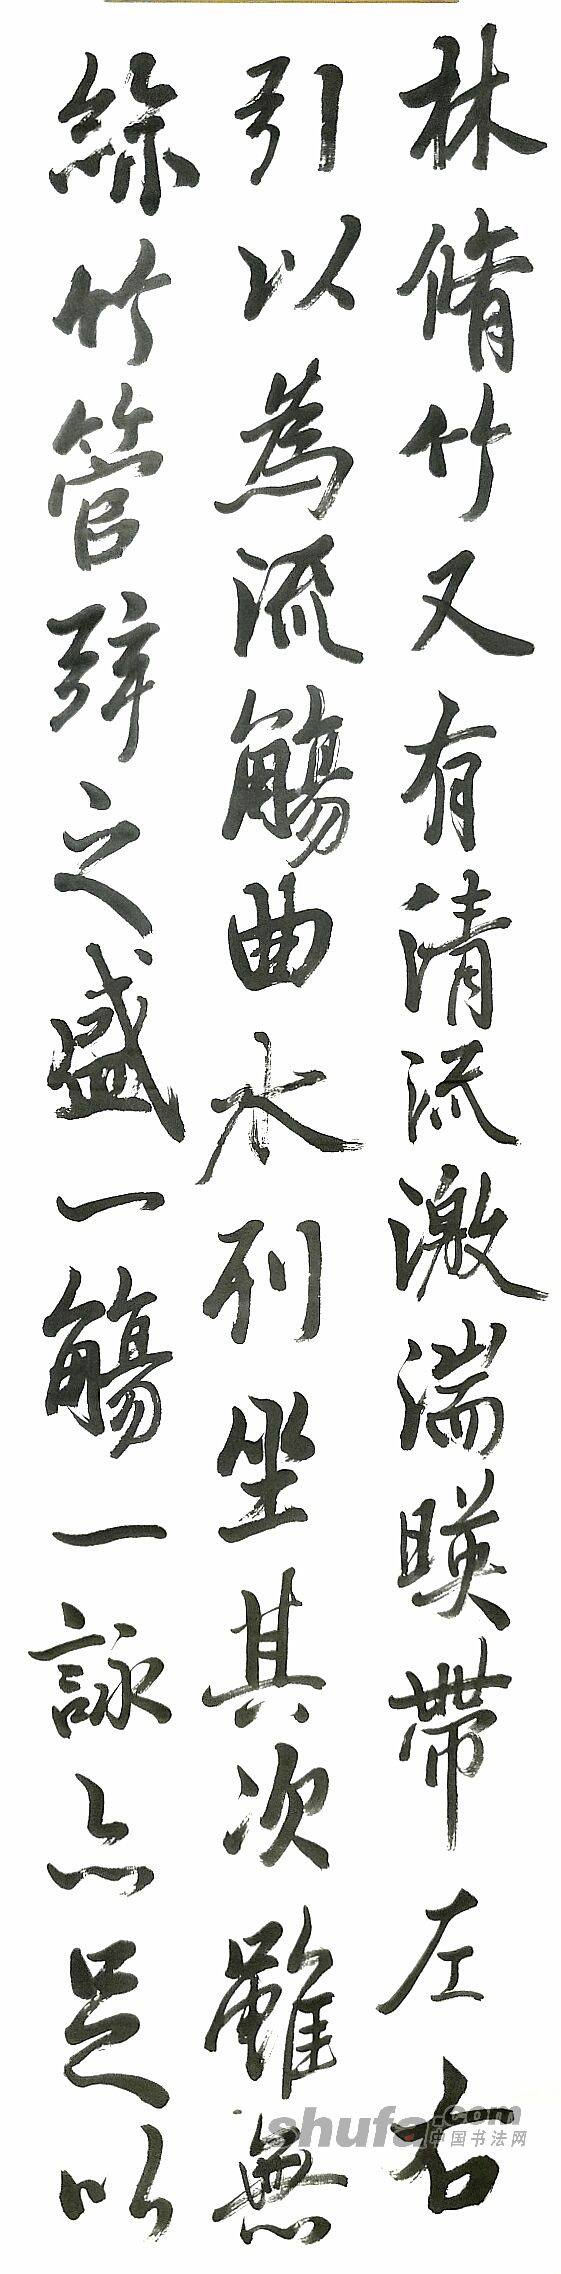 林脩竹又有清流激湍暎帶左右
引以為流觴曲水列坐其次雖無
絲竹管弦之盛一觴一詠亦足以
shufa.com
中国书法网